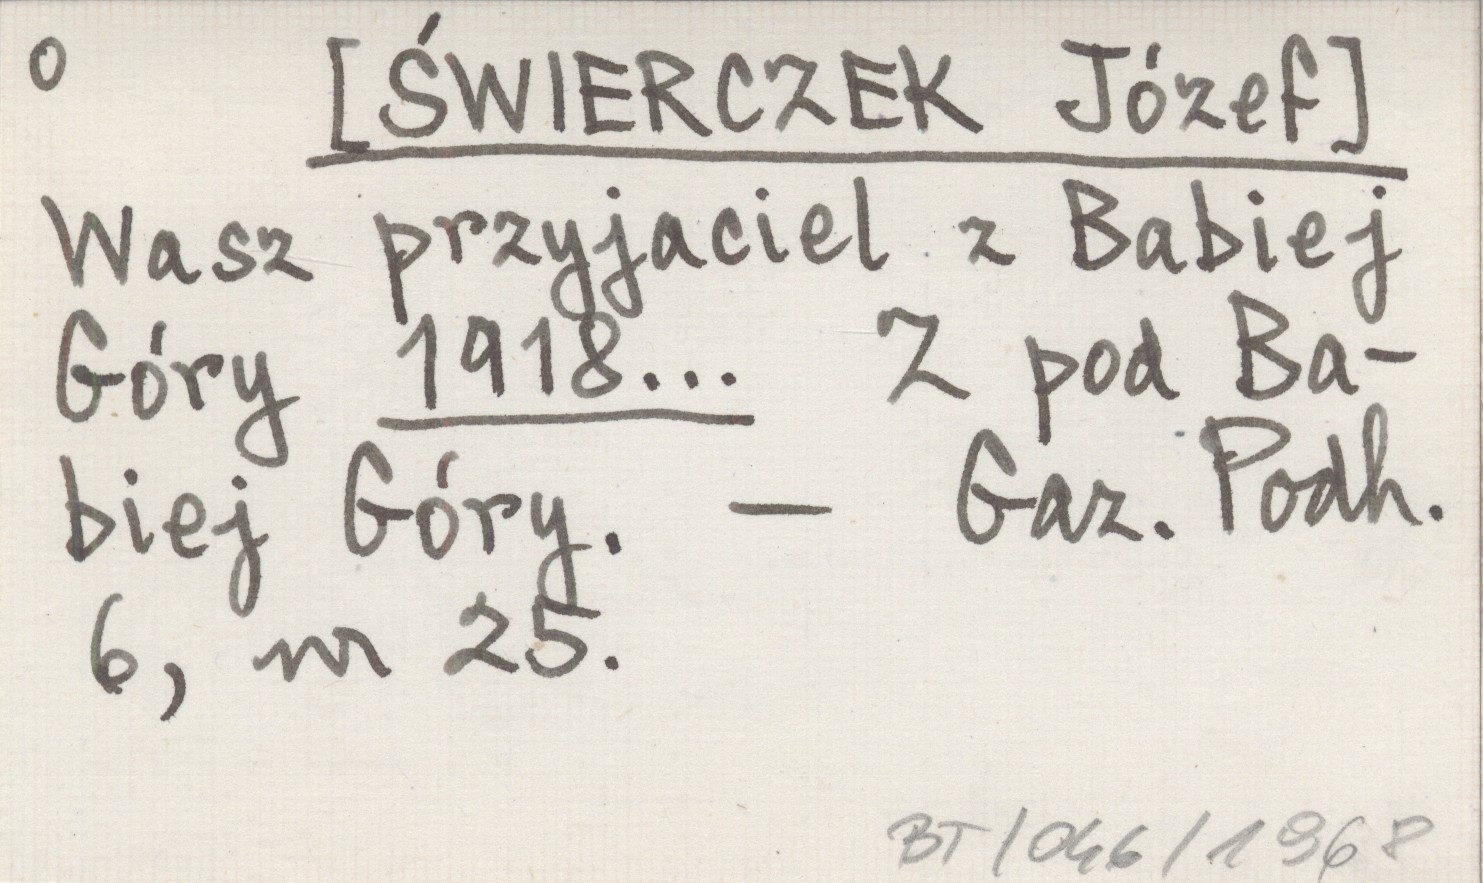 o [ŚWIERCZEK Józef]
Wasz przyjaciel z Babiej
Góry 1918... Z pod Ba-
biej Góry. — Gaz. Podh.
6, nr 25.
BT/046/1968